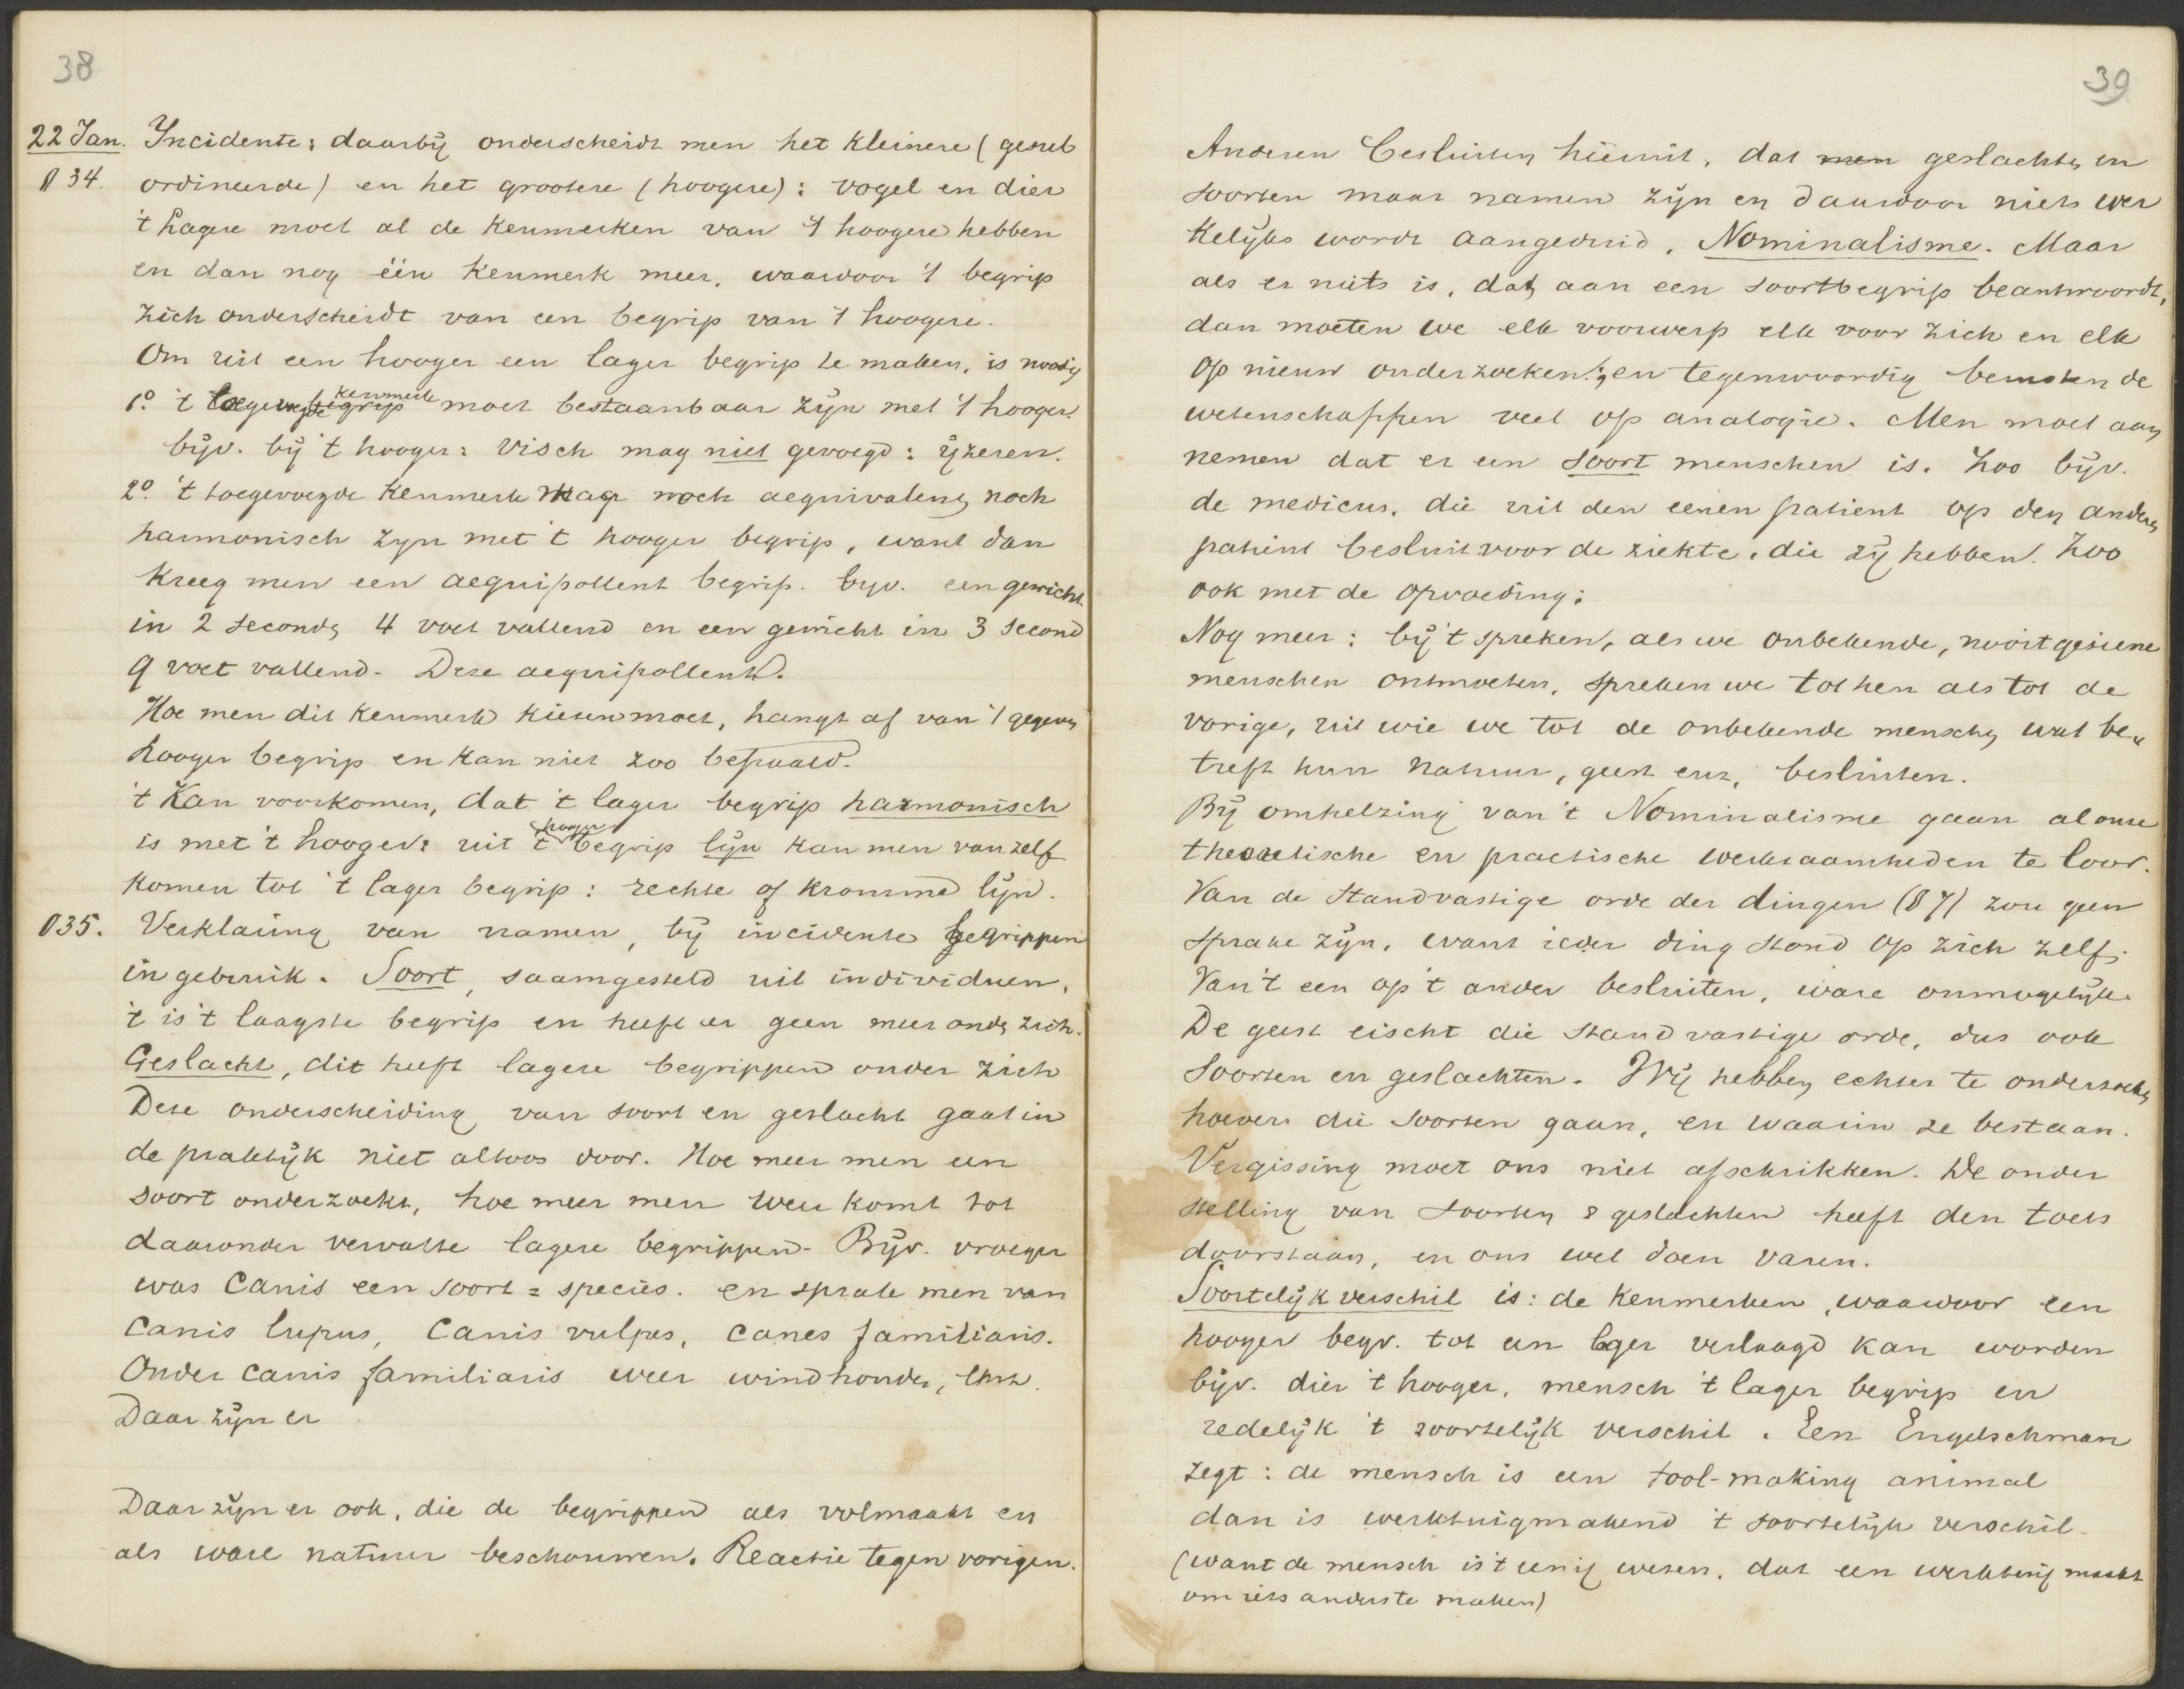 38
22 Jan. Incidente: daarbij onderscheidt men het kleinere (gesub
§ 34. ordineerde) en het grootere (hoogere): vogel en dier
't Lagere moet al de kenmerken van 't hoogere hebben
en dan nog één kenmerk meer, waardoor 't begrip
zich onderscheidt van een begrip van 't hoogere.
Om uit een hooger een lager begrip te maken, is noodig
kenmerk
1º. 't toegevoegde begrip moet bestaanbaar zijn met 't hooger.
bijv. bij 't hooger: visch mag niet gevoegd: ijzeren.
2º. 't toegevoegde kenmerk mag noch aequivalent noch
harmonisch zijn met 't hooger begrip, want dan
kreeg men een aequipollent begrip. bijv. een gewicht
in 2 seconds 4 voet vallend en een gewicht in 3 second
9 voet vallend. Deze aequipollent.
Hoe men dit kenmerk kiezen moet, hangt af van 't gegeven
hooger begrip en kan niet zoo bepaald.
't Kan voorkomen, dat 't lager begrip harmonisch
hooger
is met 't hooger: uit 't begrip lijn kan men van zelf
komen tot 't lager begrip: rechte of kromme lijn.
§ 35. Verklaring van namen, bij incidente begrippen
in gebruik. Soort, saamgesteld uit individuen,
't is 't laagste begrip en heeft er geen meer onder zich.
Geslacht, dit heeft lagere begrippen onder zich
Deze onderscheiding van soort en geslacht gaat in
de praktijk niet altoos door. Hoe meer men een
soort onderzoekt, hoe meer men weer komt tot
daaronder vervatte lagere begrippen. Bijv. vroeger
was Canis een soort = species. en sprak men van
Canis lupus, Canis vulpes, canes familiaris.
Onder canis familiaris weer windhonden, enz.
Daar zijn er
Daar zijn er ook, die de begrippen als volmaakt en
als ware natuur beschouwen. Reactie tegen vorigen.
39
Anderen besluiten hieruit, dat men geslachten en
soorten maar namen zijn en daardoor niets wer
kelijks wordt aangeduid. Nominalisme. Maar
als er niets is, dat aan een soortbegrip beantwoordt,
dan moeten we elk voorwerp elk voor zich en elk
op nieuw onderzoeken; en tegenwoordig berusten de
wetenschappen veel op analogie. Men moet aan
nemen dat er een soort menschen is. Zoo bijv.
de medicus, die uit den eenen patient op den anderen
patient besluit voor de ziekte, die zij hebben. Zoo
ook met de opvoeding;
Nog meer: bij 't spreken, als we onbekende, nooit geziene
menschen ontmoeten, spreken we tot hen als tot de
vorige, uit wie we tot de onbekende menschen wat be„
treft hun natuur, geest enz, besluiten.
Bij omhelzing van 't Nominalisme gaan al onze
theoretische en practische werkzaamheden te loor.
Van de standvastige orde der dingen (§ 7) zou geen
sprake zijn, want ieder ding stond op zich zelf;
Van 't een op 't ander besluiten, ware onmogelijk.
De geest eischt die standvastige orde, dus ook
soorten en geslachten. Wij hebben echter te onderzoeken
hoever die soorten gaan, en waarin ze bestaan.
Vergissing moet ons niet afschrikken. De onder
stelling van soorten & geslachten heeft den toets
doorstaan, en ons wel doen varen.
Soortelijk verschil is: de kenmerken, waardoor een
hooger begr. tot een lager verlaagd kan worden
bijv. dier 't hooger, mensch 't lager begrip en
redelijk 't soortelijk verschil. Een Engelschman
zegt: de mensch is een tool-making animal
dan is werktuigmakend 't soortelijk verschil.
(want de mensch is 't eenig wezen, dat een werktuig maakt
om iets anders te maken)